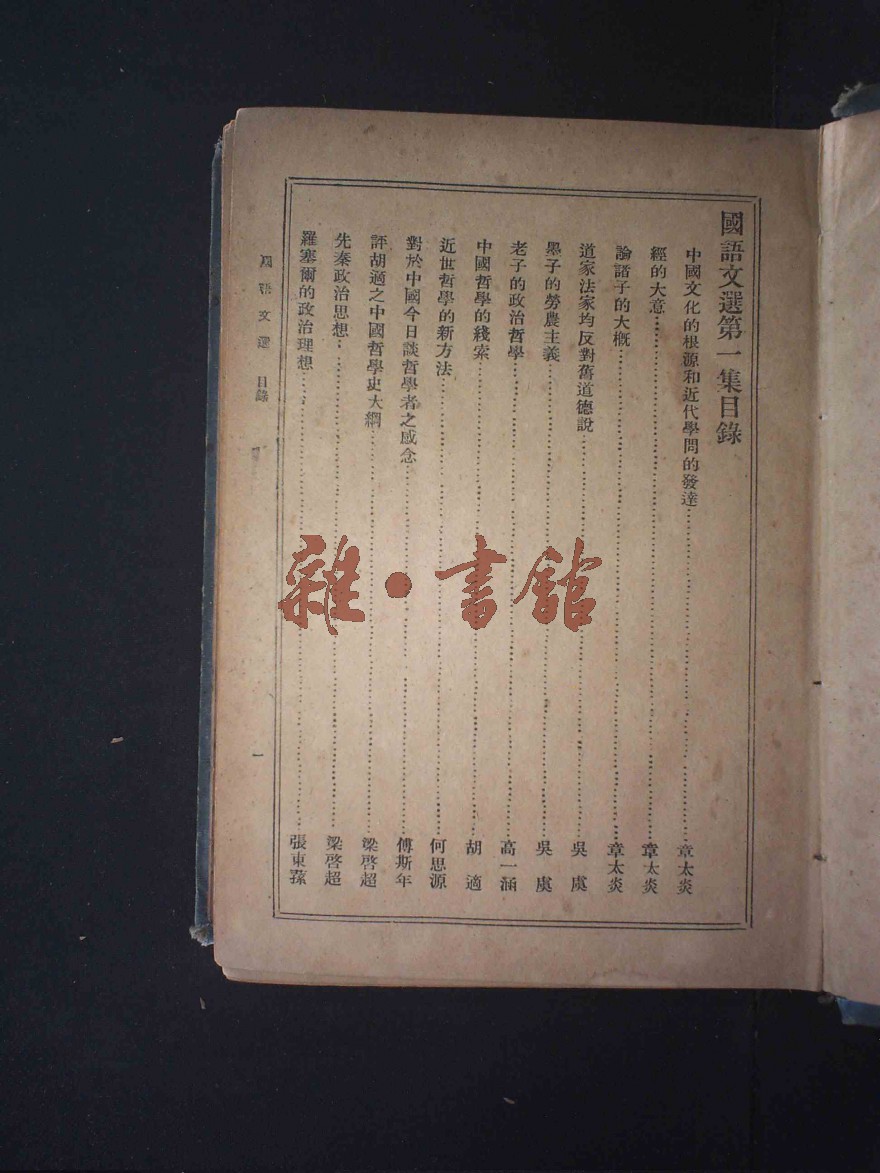 國語文選第一集目錄
中國文化的根源和近代學問的發達……章太炎
經的大意……章太炎
論諸子的大概……章太炎
道家法家均反對舊道德說……吳虞
墨子的勞農主義……吳虞
老子的政治哲學……高一涵
中國哲學的綫索……胡適
近世哲學的新方法……何思源
對於中國今日談哲學者之感念……傅斯年
評胡適之中國哲學史大綱……梁啓超
先秦政治思想……梁啓超
羅塞爾的政治理想……張東蓀
國語文選 目錄
一
雜·書館